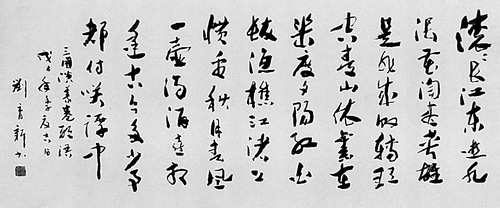 滚〻长江东逝水
浪花淘尽英雄
是非成败转头
空青山依旧在
几度夕阳红白
发渔樵江渚上
惯看秋月春风
一壶浊酒喜相
逢古今多少事
都付笑谈中
三國演義卷头语
劉育新书